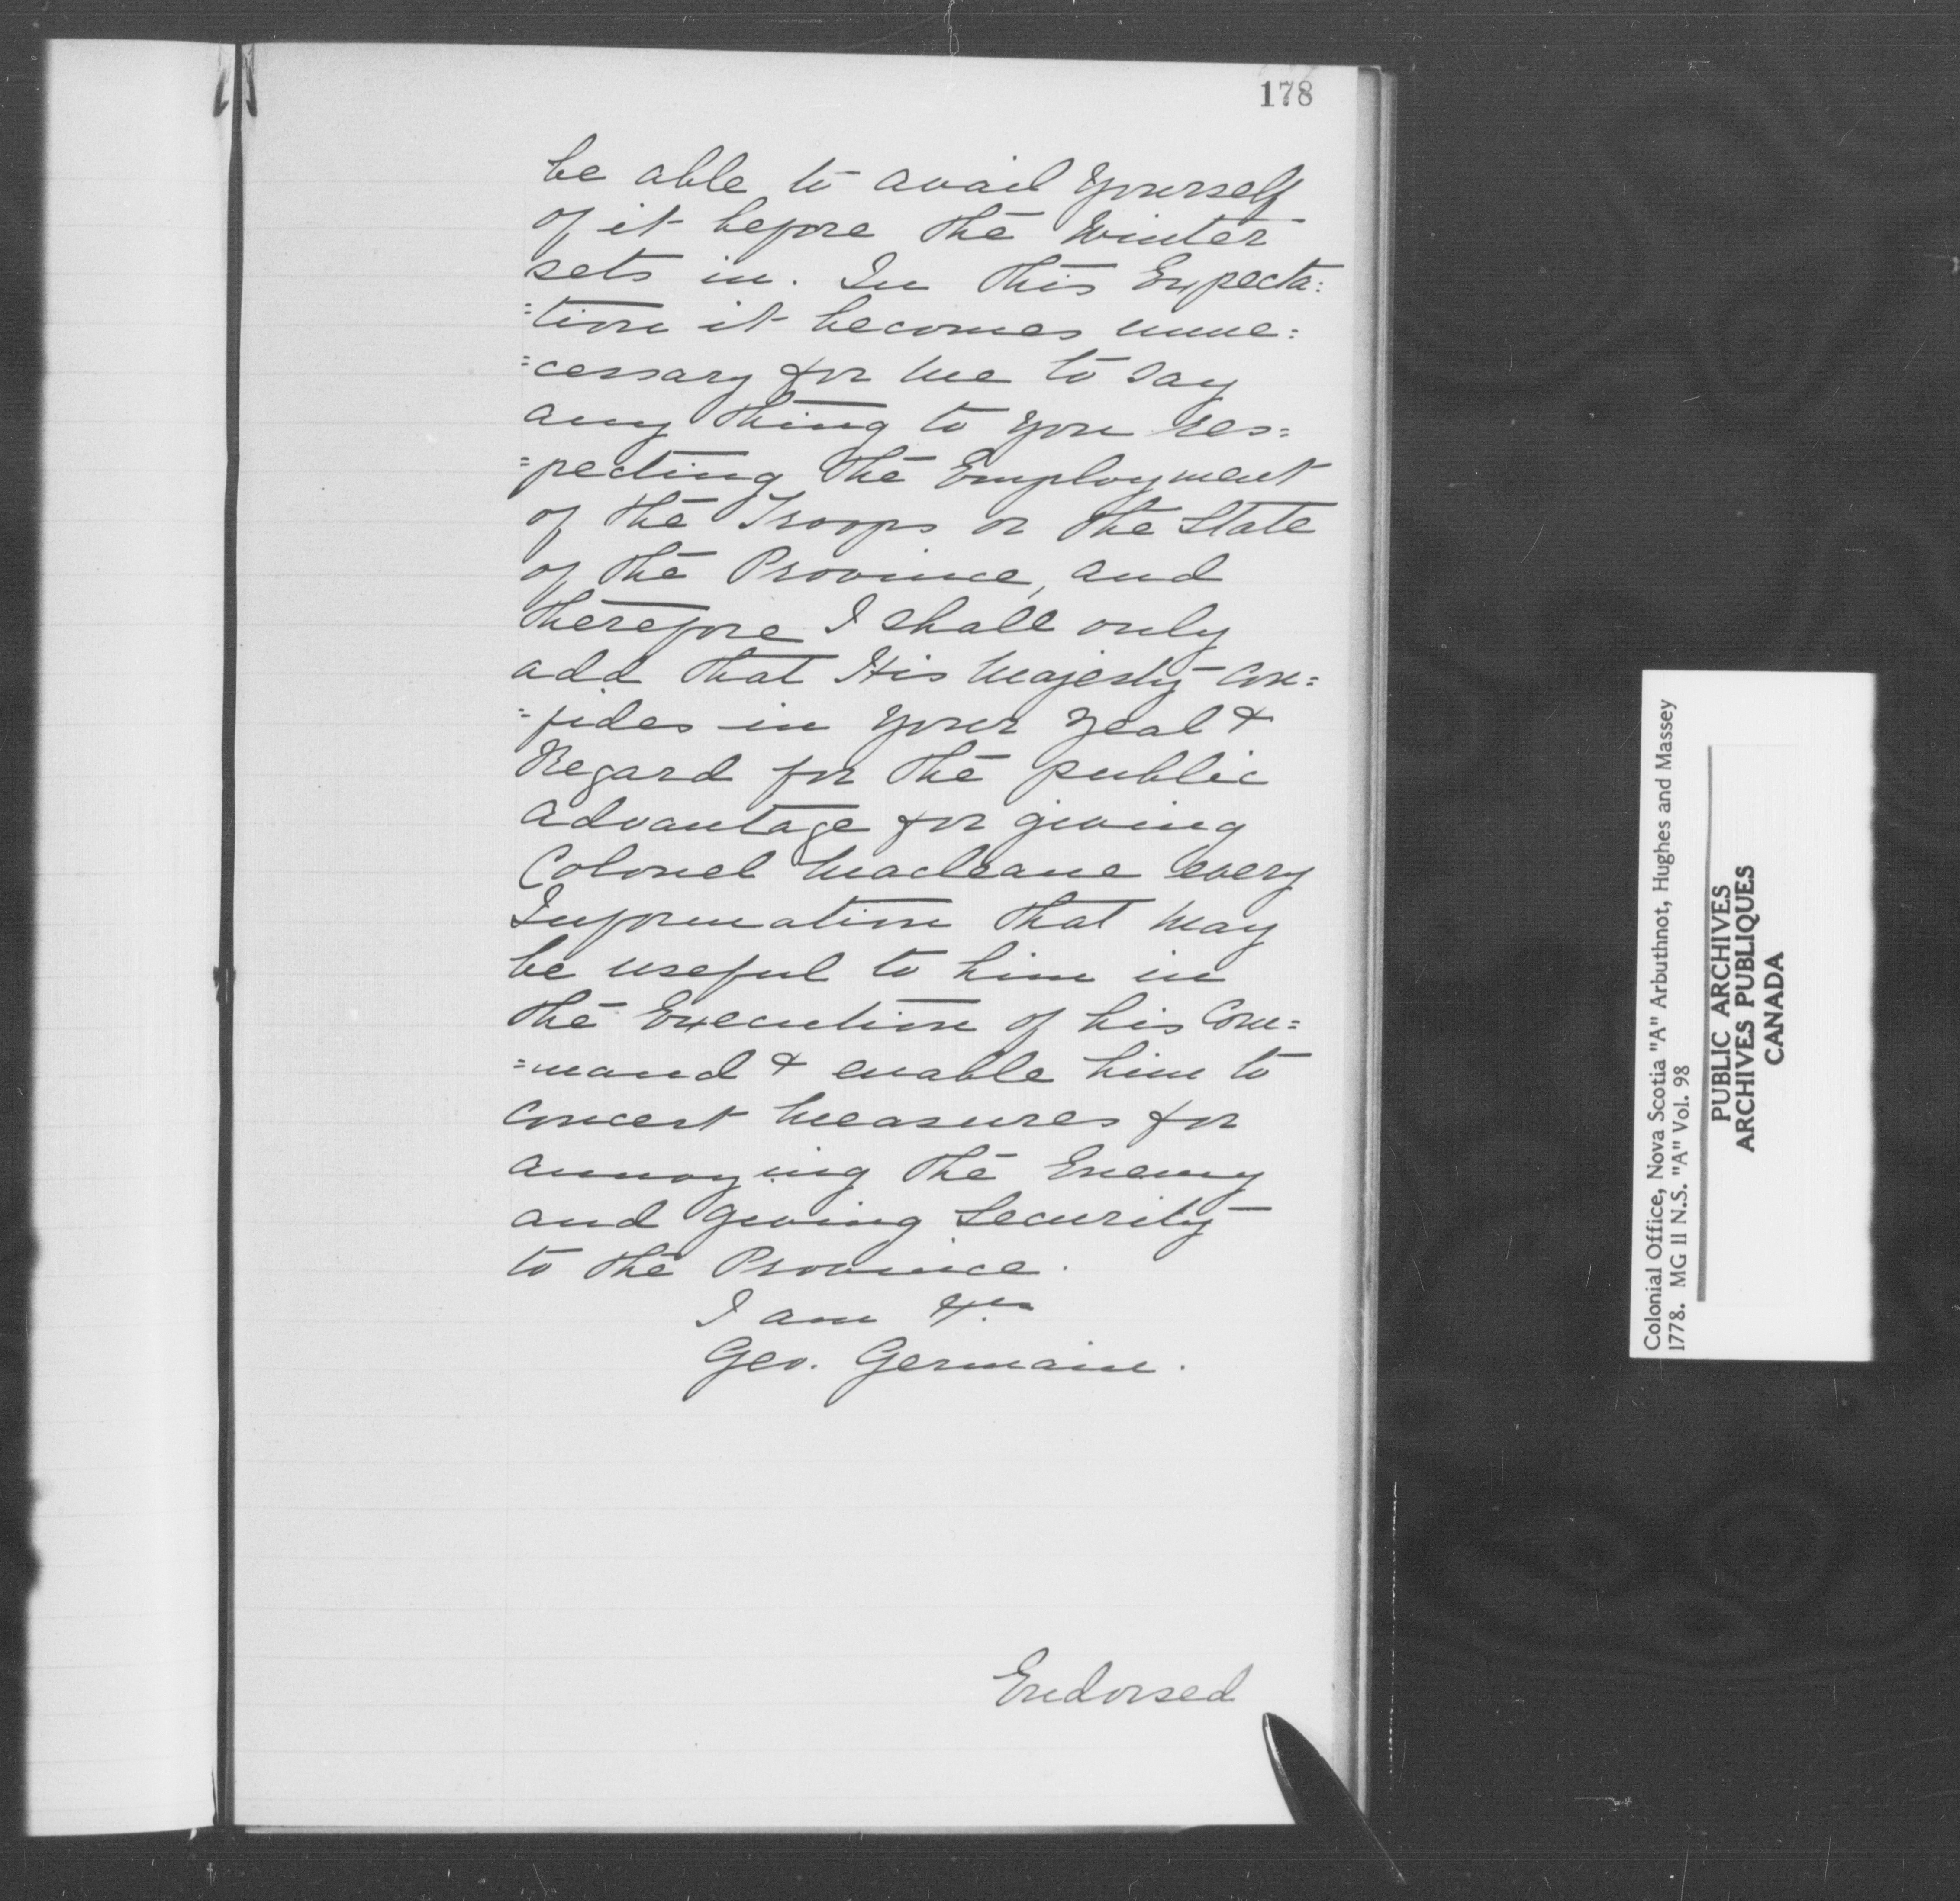 178
be able to avail Yourself
of it before the Winter
sets in. In this Expecta:
=tion it becomes unne:
=cessary for me to say
any thing to you res=
=pecting the Employment
of the Troops or the State
of the Province, and
therefore I shall only
add that His Majesty con=
=fides in your zeal &
Regard for the public
advantage for giving
Colonel Macleane every
Information that may
be useful to him in
the Execution of his Com=
=mand & enable him to
concert Measures for
annoying the Enemy
and giving Security
to the Province.
I am &ca
Geo. Germain.
Endorsed
Colonial Office, Nova Scotia "A" Arbuthnot, Hughes and Massey
1778. MG II N.S. "A" Vol. 98
PUBLIC ARCHIVES
ARCHIVES PUBLIQUES
CANADA